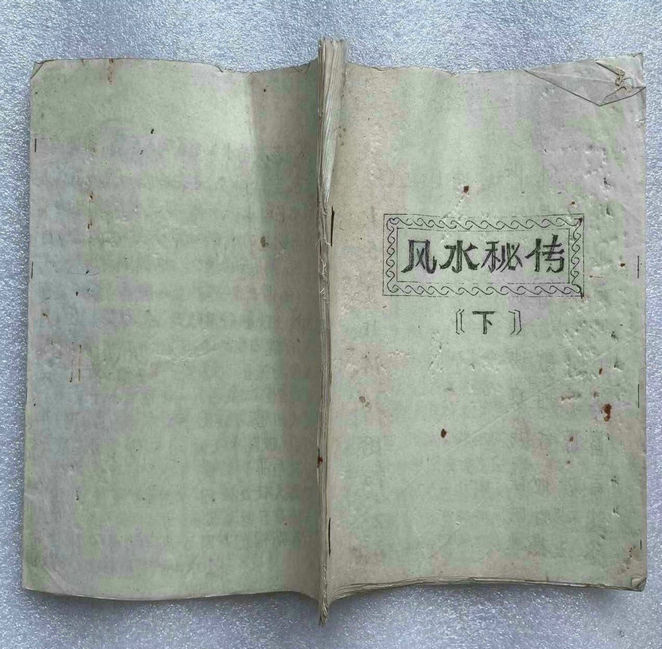 风水秘传
〔下〕